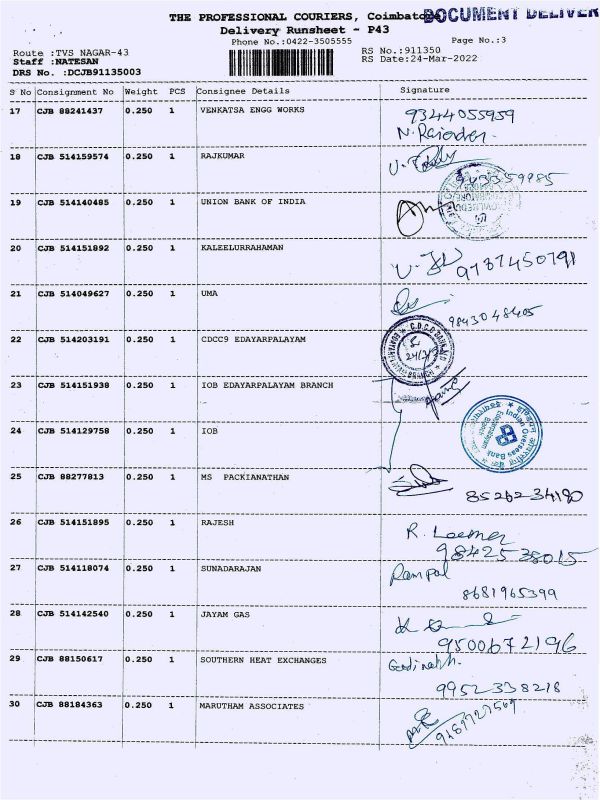 THE PROFESSIONAL COURIERS, Coimbatore
DOCUMENT DELIVER
Delivery Runsheet - P43
Phone No.:0422-3505555
Page No.:3
Route :TVS NAGAR-43
RS No.:911350
Staff :NATESAN
RS Date:24-Mar-2022
DRS No. :DCJB91135003
S No Consignment No Weight PCS Consignee Details Signature
17 CJB 88241437 0.250 1 VENKATSA ENGG WORKS 9344055959
18 CJB 514159574 0.250 1 RAJKUMAR
19 CJB 514140485 0.250 1 UNION BANK OF INDIA
20 CJB 514151892 0.250 1 KALEELURRAHAMAN
9787450791
21 CJB 514049627 0.250 1 UMA
9843048405
22 CJB 514203191 0.250 1 CDCC9 EDAYARPALAYAM
23 CJB 514151938 0.250 1 IOB EDAYARPALAYAM BRANCH
24 CJB 514129758 0.250 1 IOB
Indian Overseas Bank
25 CJB 88277813 0.250 1 MS PACKIANATHAN
8526234190
26 CJB 514151895 0.250 1 RAJESH
9842538015
27 CJB 514118074 0.250 1 SUNADARAJAN Rampal
8681965399
28 CJB 514142540 0.250 1 JAYAM GAS
9500672196
29 CJB 88150617 0.250 1 SOUTHERN HEAT EXCHANGES
9952338218
30 CJB 88184363 0.250 1 MARUTHAM ASSOCIATES